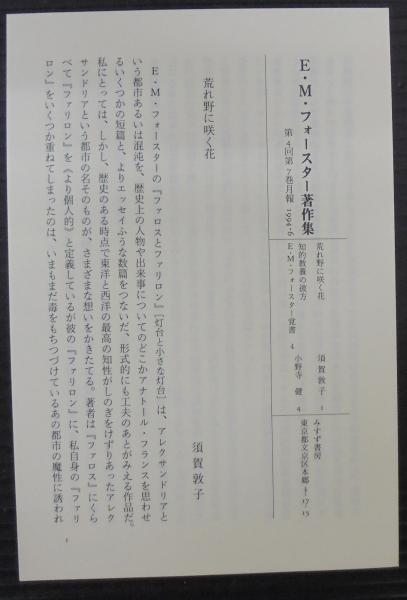 E・M・フォースター著作集
第4回第7巻月報 1994・6
荒れ野に咲く花 須賀敦子 1
知的教養の彼方
E・M・フォースター覚書 4 小野寺 健 4
みすず書房
東京都文京区本郷 17/15
荒れ野に咲く花
須賀敦子
E・M・フォースターの『ファロスとファリロン』〔灯台と小さな灯台〕は、アレクサンドリアと
いう都市あるいは混沌を、歴史上の人物や出来事についてのどこかアナトール・フランスを思わせ
るいくつかの短篇と、よりエッセイふうな数篇をつないだ、形式的にも工夫のあとがみえる作品だ。
私にとっては、しかし、歴史のある時点で東洋と西洋の最高の知性がしのぎをけずりあったアレク
サンドリアという都市の名そのものが、さまざまな想いをかきたてる。著者は『ファロス』にくら
べて『ファリロン』を《より個人的》と定義しているが彼の『ファリロン』に、私自身の『ファリ
ロン』をいくつか重ねてしまったのは、いまもまだ毒をもちつづけているあの都市の魔性に誘われ
1